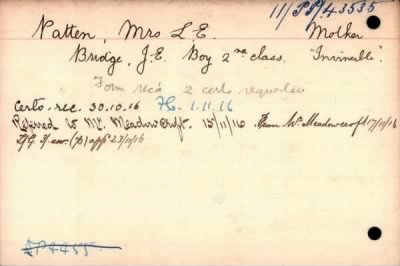 11/PP/43535
Patten, Mrs L.E. Mother
Bridge, J.E. Boy 2nd class. "Invincible".
Form recd 2 certs requested
Certs. rec. 30.10.16 1.11.16
Referred to Mr. Meadowcroft. 15/11/16 From Mr Meadowcroft 17/11/16
23/11/16